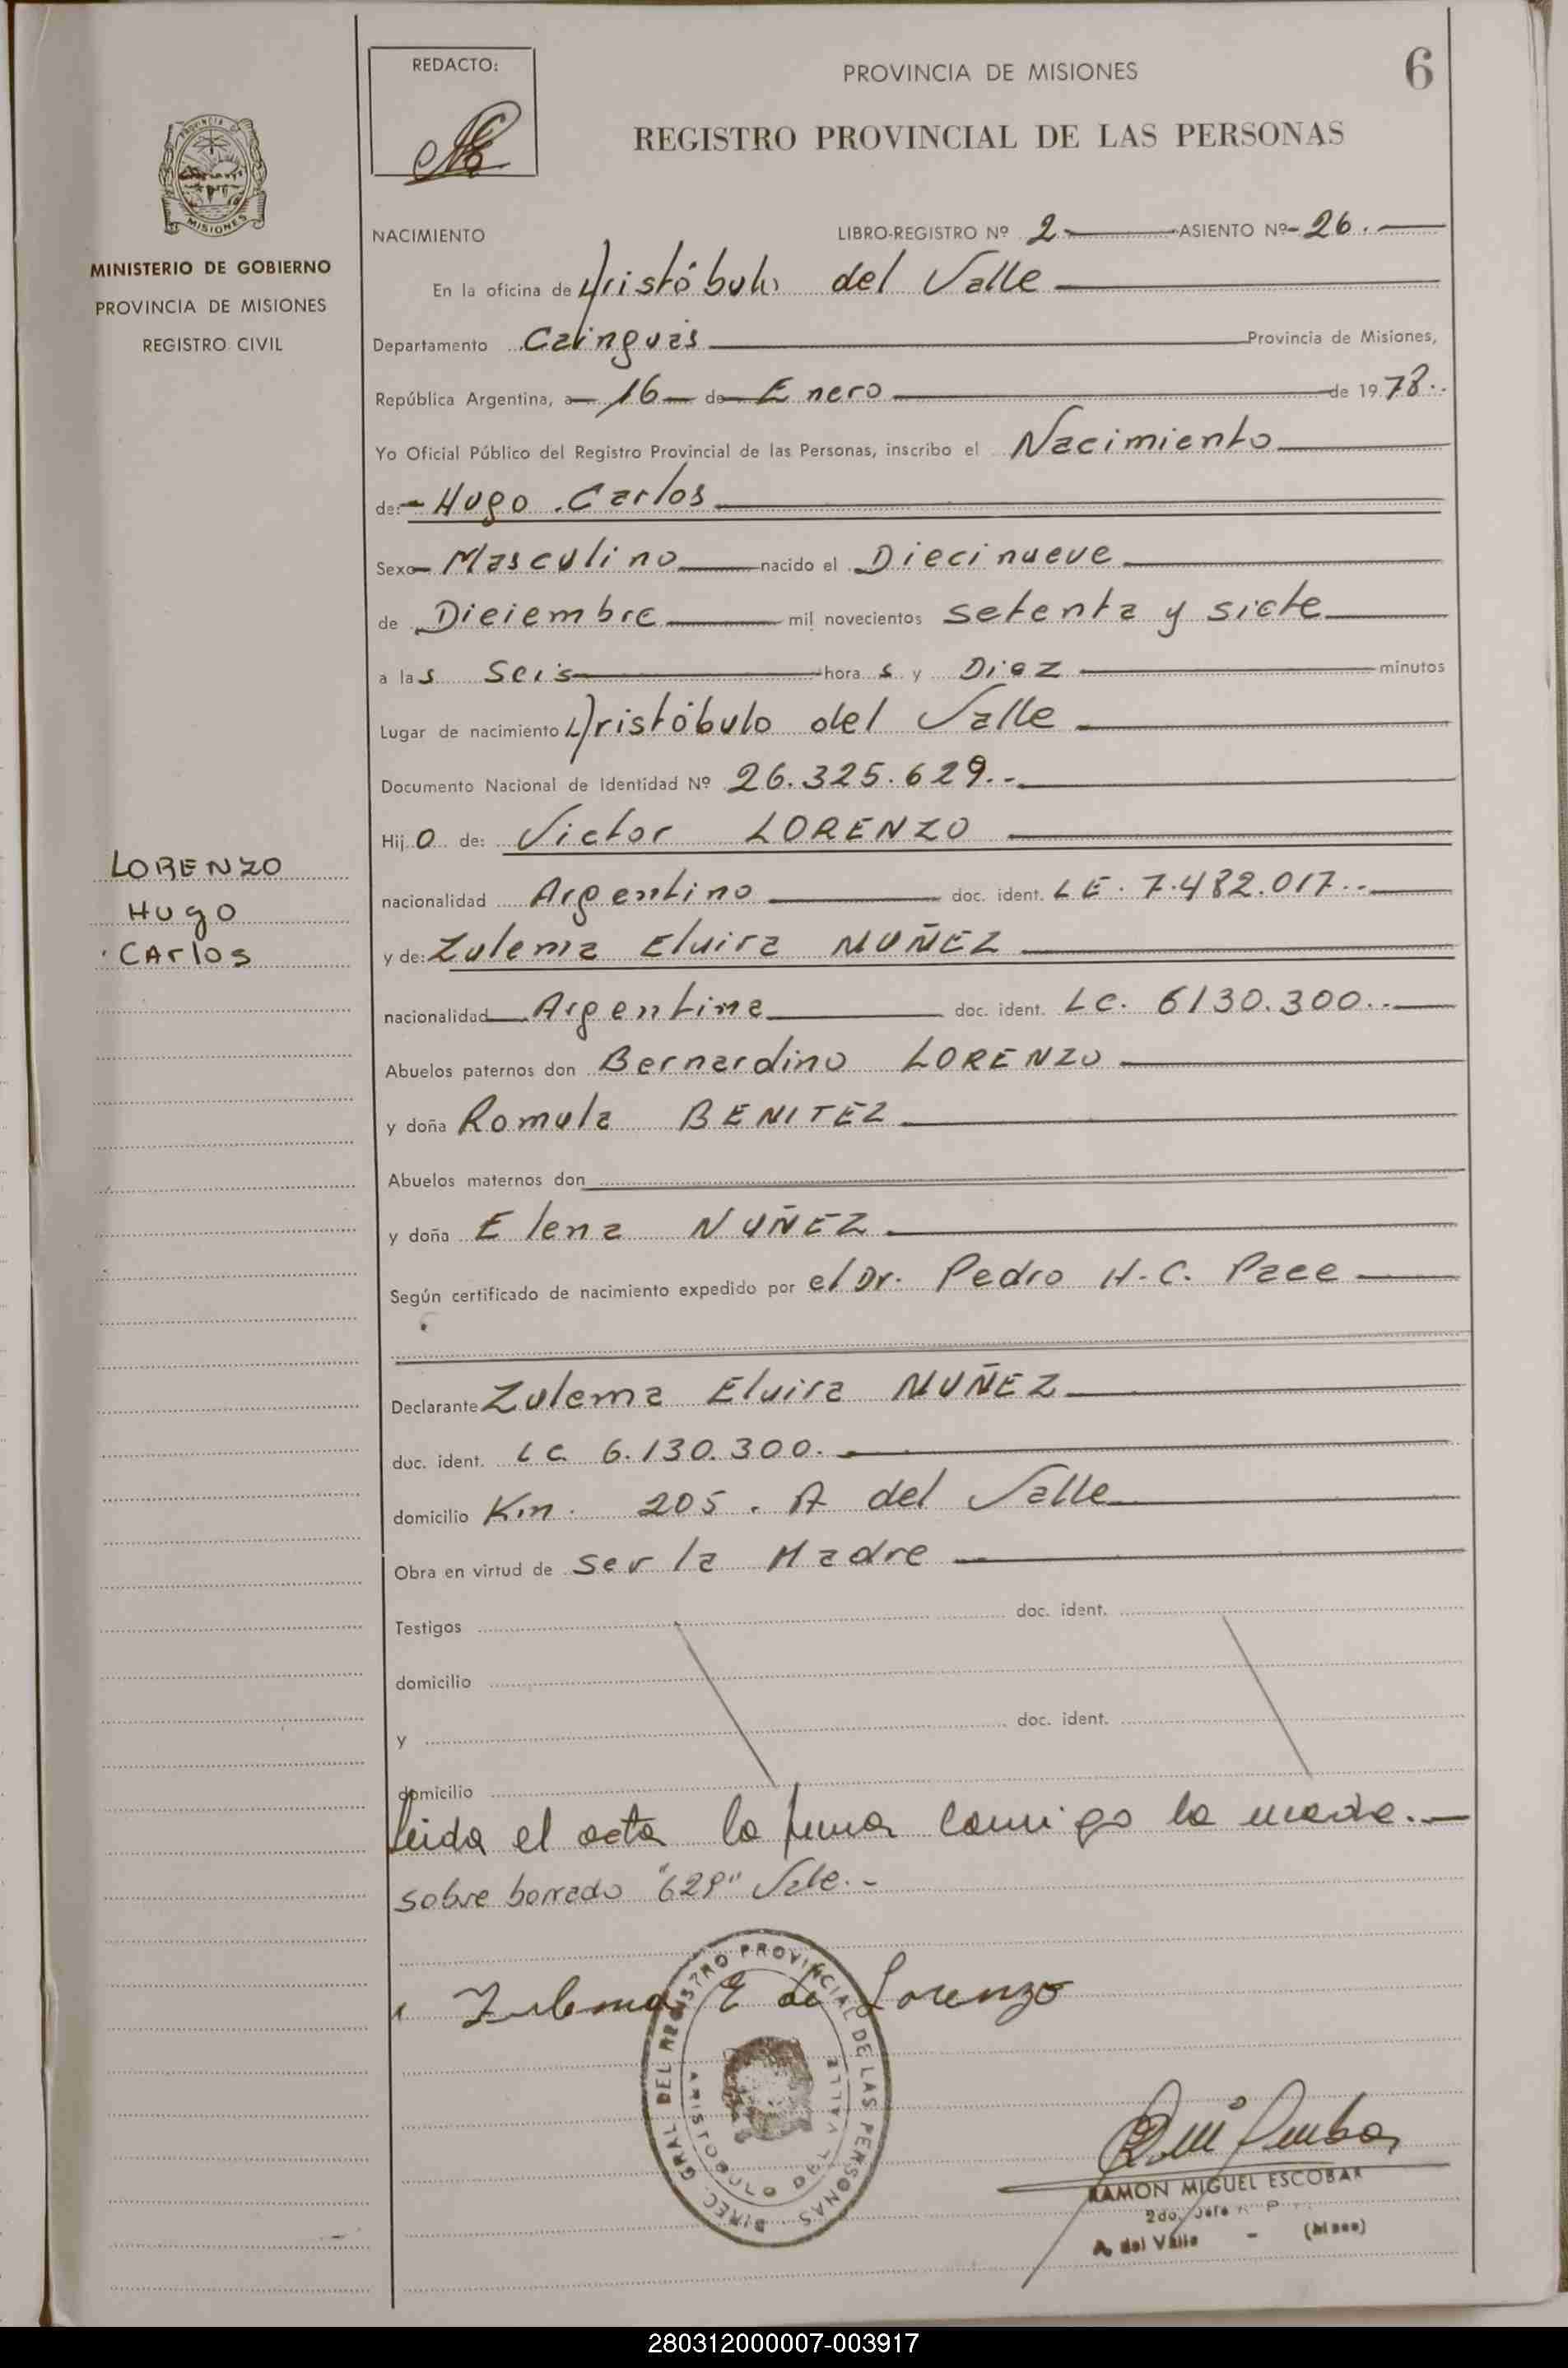 REDACTO:
PROVINCIA DE MISIONES
6
REGISTRO PROVINCIAL DE LAS PERSONAS
PROVINCIA DE
MISIONES
MINISTERIO DE GOBIERNO
PROVINCIA DE MISIONES
REGISTRO CIVIL
NACIMIENTO LIBRO-REGISTRO Nº 2 ASIENTO Nº 26.
En la oficina de Aristóbulo del Valle
Departamento Cainguás Provincia de Misiones,
República Argentina, a 16 de Enero de 1978..
Yo Oficial Público del Registro Provincial de las Personas, inscribo el Nacimiento
de: Hugo Carlos
Sexo Masculino nacido el Diecinueve
de Diciembre mil novecientos setenta y siete
a las seis horas y Diez minutos
Lugar de nacimiento Aristóbulo del Valle
Documento Nacional de Identidad Nº 26.325.629.-
Hijo de: Victor LORENZO
nacionalidad Argentino doc. ident. LE. 7.482.017.-
y de: Zulema Elvira NUÑEZ
nacionalidad Argentina doc. ident. LC. 6130.300.-
Abuelos paternos don Bernardino LORENZO
y doña Romula BENITEZ
Abuelos maternos don
y doña Elena NUÑEZ
Según certificado de nacimiento expedido por el Dr. Pedro H.C. Pace
LORENZO
Hugo
CArlos
Declarante Zulema Elvira NUÑEZ
doc. ident. LC. 6.130.300.
domicilio Km. 205. A del Valle
Obra en virtud de ser la Madre
Testigos doc. ident.
domicilio
y doc. ident.
domicilio
leida el acta la firma conmigo la madre.-
sobre borrado "629" Vale.-
Zulema E de Lorenzo
DIREC. GRAL. DEL REGISTRO PROVINCIAL DE LAS PERSONAS
ARISTOBULO DEL VALLE
RAMON MIGUEL ESCOBAR
2do. Jefe R. P.
A. del Valle - (Mnes)
280312000007-003917